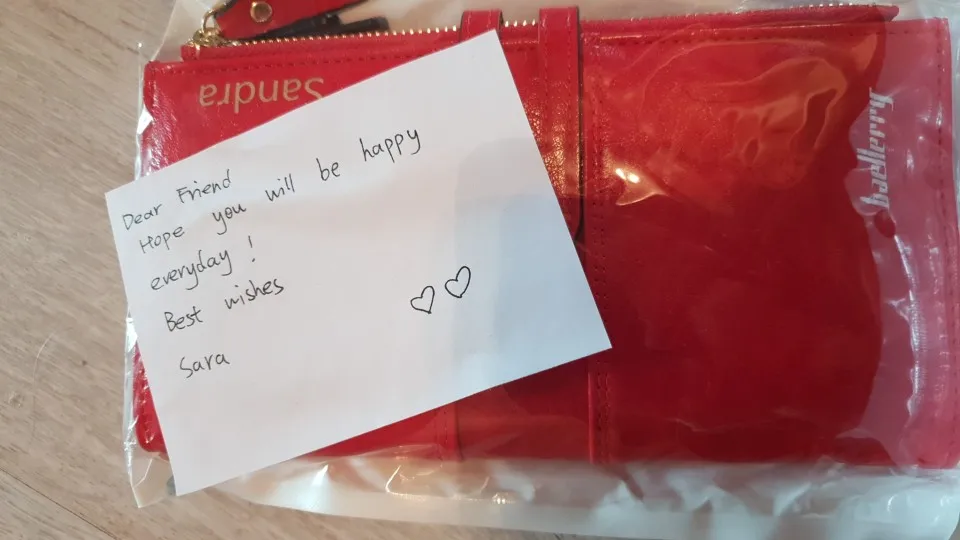 Sandra
baellerry
Dear Friend
Hope you will be happy
everyday !
Best wishes
Sara